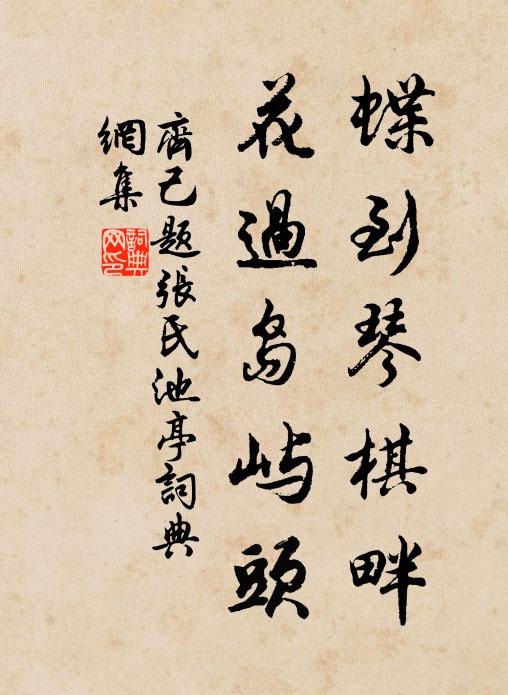 蝶到琴棋畔
花過島屿頭
齊己题張氏池亭詞典
網集
詞典網印